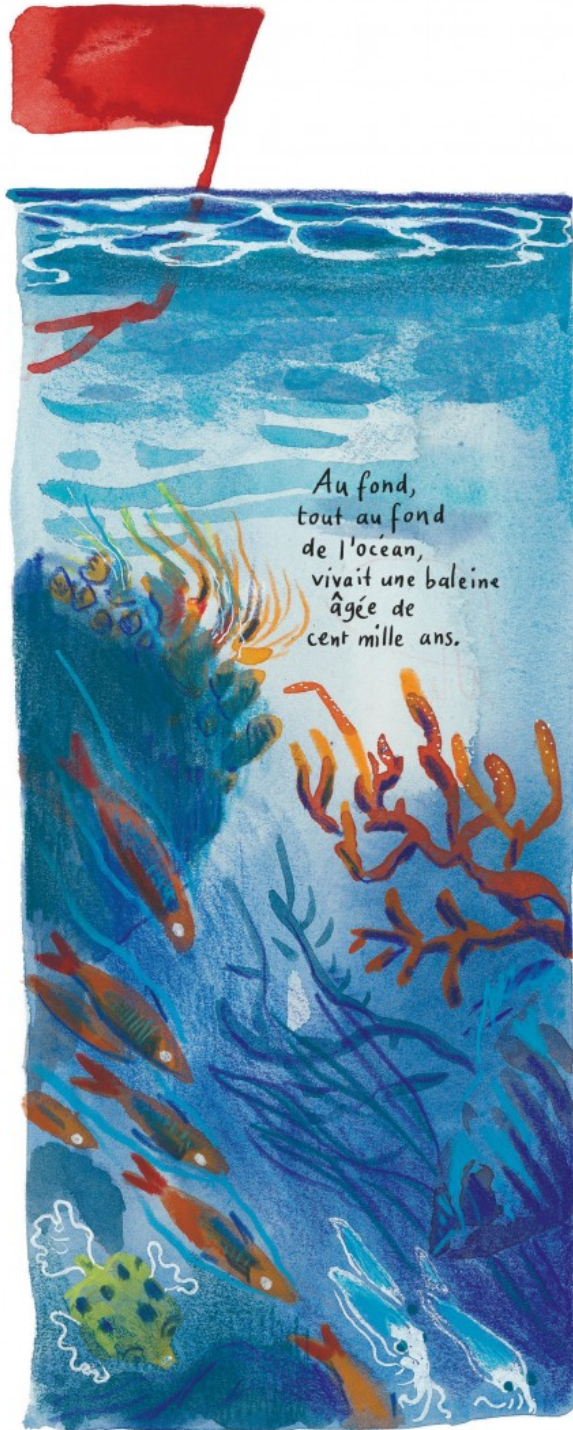 Au fond,
tout au fond
de l'océan,
vivait une baleine
âgée de
cent mille ans.